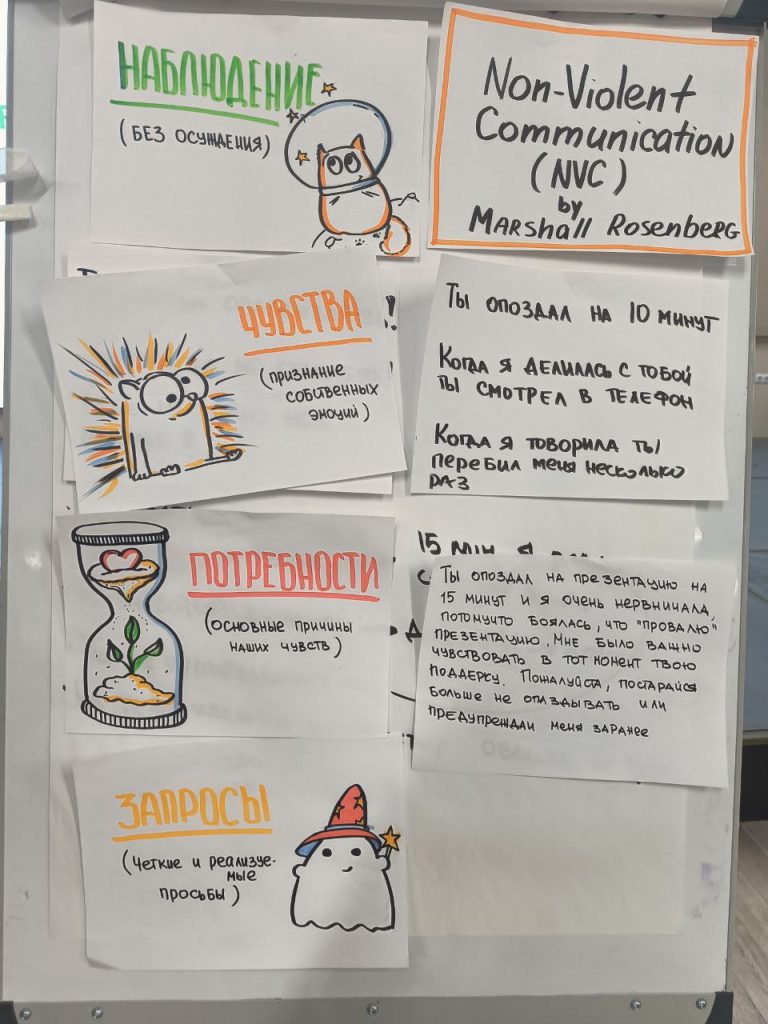 НАБЛЮДЕНИЕ
(БЕЗ ОСУЖДЕНИЯ)
Non-Violent
Communication
(NVC)
by
MARShall RosenbeRG
ЧУВСТВА
(признание
собственных
эмоций)
Ты опоздал на 10 минут
Когда я делилась с тобой
ты смотрел в телефон
Когда я говорила ты
перебил меня несколько
раз
ПОТРЕБНОСТИ
(основные причины
наших чувств)
15 мин я
Ты опоздал на презентацию на
15 минут и я очень нервничала,
потомуито боялась, что "провалю"
презентацию. Мне было важно
чувствовать в тот момент твою
поддерку. Пожалуйста, постарайся
больше не опаздывать или
предупреждай меня заранее
ЗАПРОСЫ
(Четкие и реализуе-
мые
просьбы)